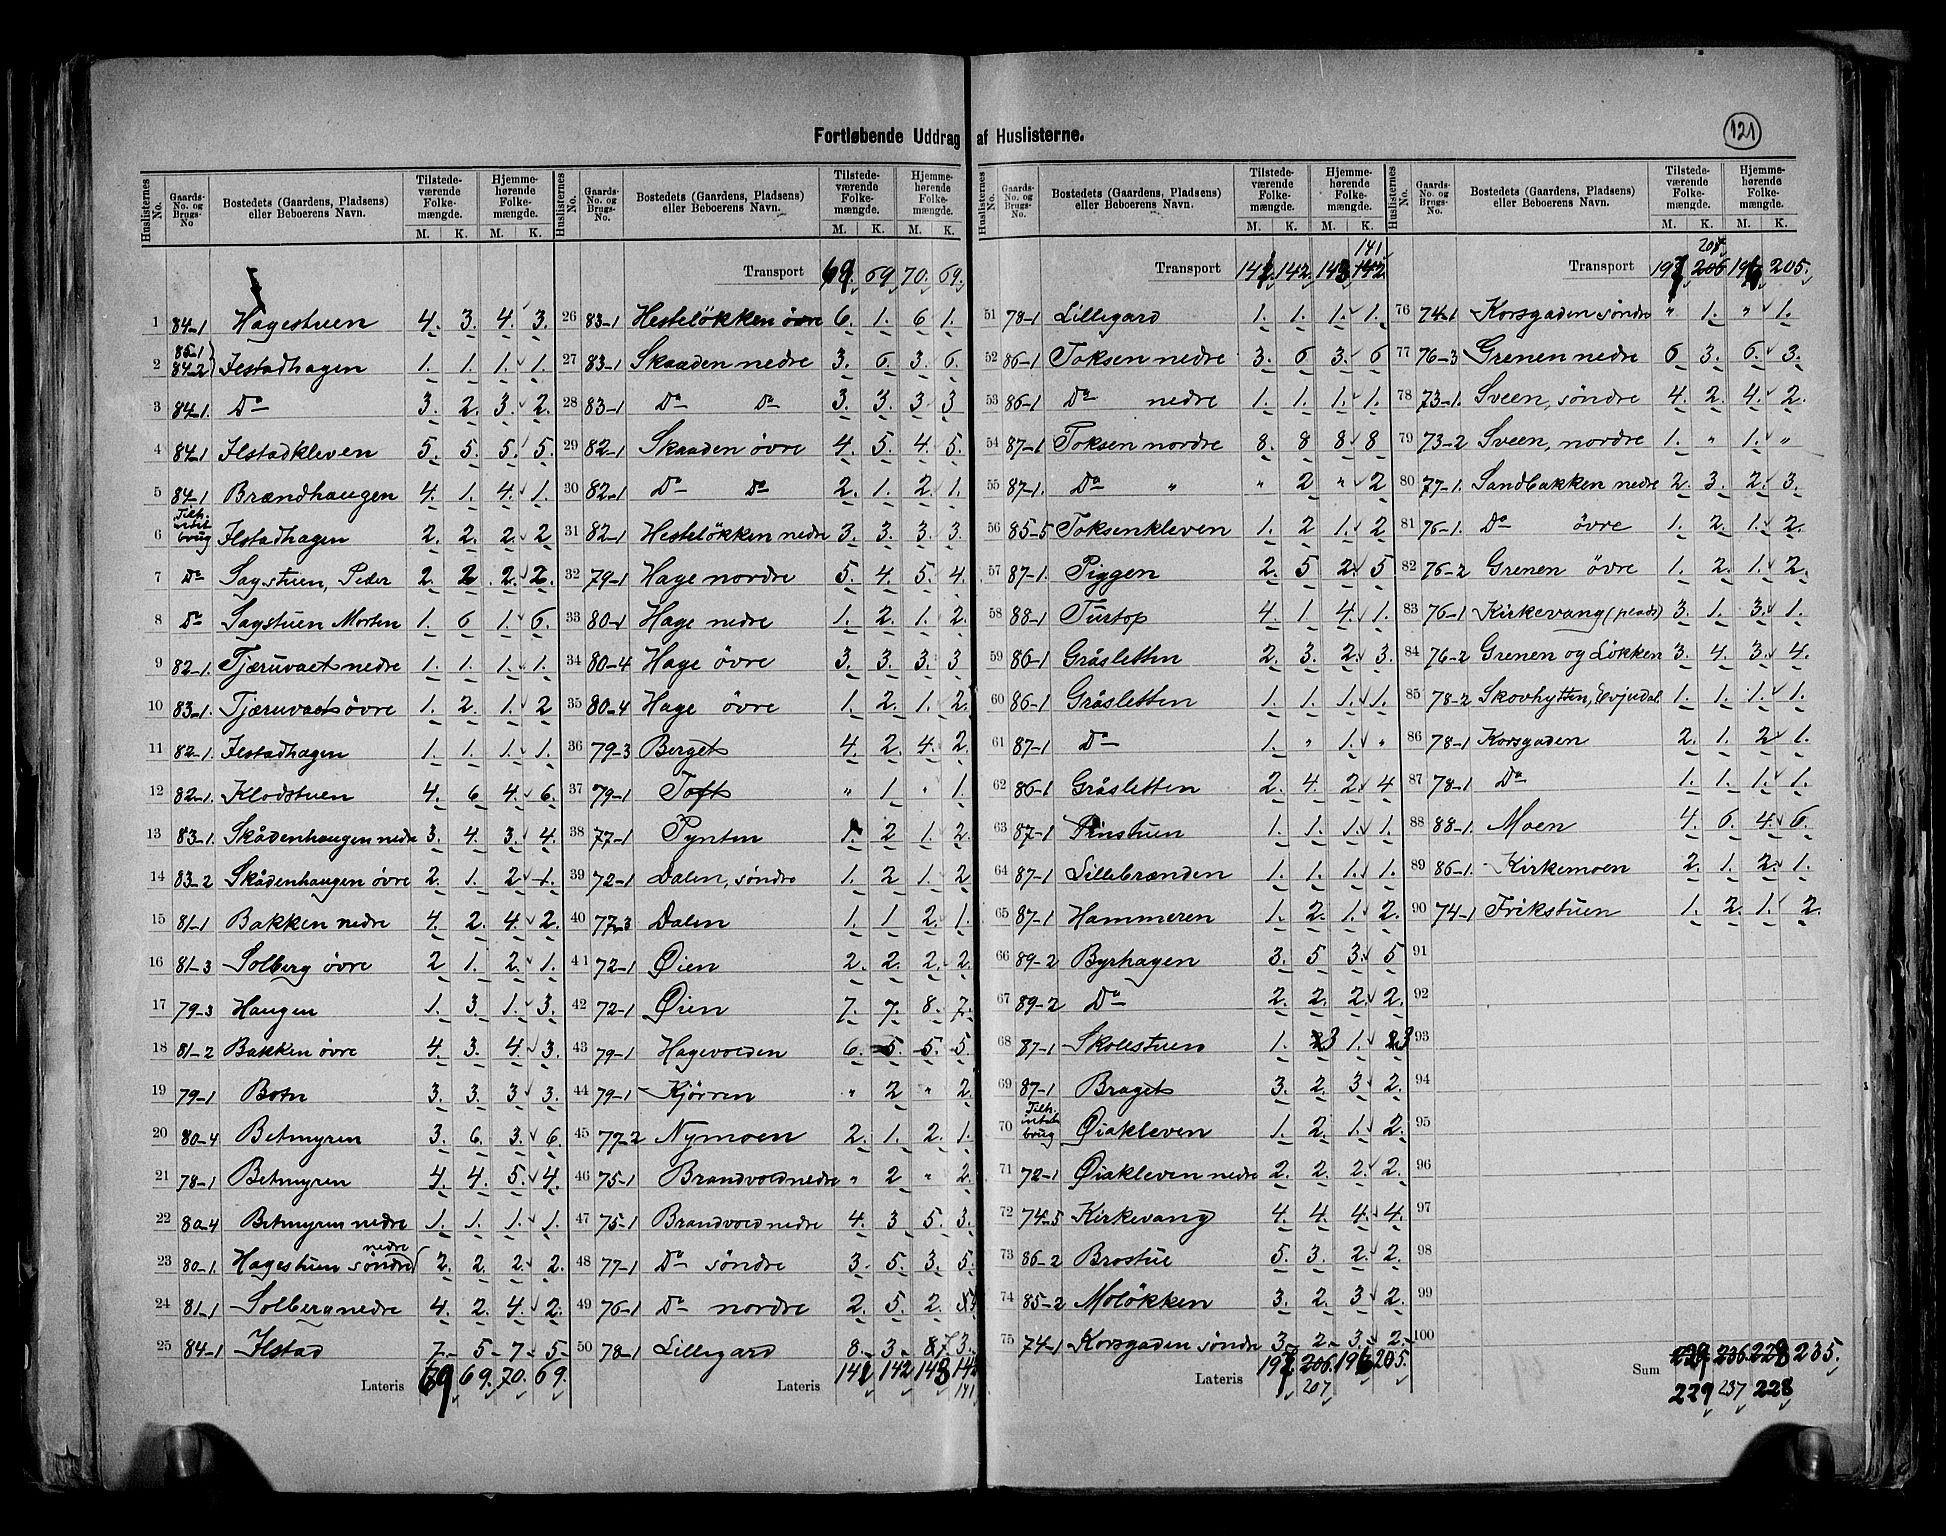 Fortløbende Uddrag af Huslisterne.
121
Huslisternes No. | Gaards-No. og Brugs-No | Bostedets (Gaardens, Pladsens) eller Beboerens Navn. | Tilstedeværende Folkemængde. M. K. | Hjemmehørende Folkemængde. M. K.
1 84-1 Hagestuen 4. 3. 4. 3.
2 85-1 84-2 Ilstadhagen 1. 1. 1. 1.
3 84-1. Do 3. 2. 3. 2.
4 84-1 Ilstadkleven 5. 5. 5. 5.
5 84-1 Brændhaugen 4. 1. 4. 1.
6 Ilstadhagen 2. 2. 2. 2
7 Do Sagstuen, Peder 2. 2. 2. 2.
8 Do Sagstuen Morten 1. 6 1. 6.
9 82-1. Tjæruvaets nedre 1. 1. 1. 1.
10 83-1. Tjæruvaets øvre 1. 2. 1. 2
11 82-1. Ilstadhagen 1. 1. 1. 1.
12 82-1. Klodstuen 4. 6 4. 6.
13 83-1. Skådenhaugen nedre 3. 4. 3. 4.
14 83-2 Skådenhaugen øvre 2. 1. 2. 1.
15 81-1 Bakken nedre 4. 2. 4. 2.
16 81-3 Solberg øvre 2 1. 2. 1.
17 79-3 Haugen 1. 3. 1. 3.
18 81-2 Bakken øvre 4. 3. 4. 3.
19 79-1 Botn 3. 3. 3 3.
20 80-4 Betmyren 3. 6. 3. 6.
21 78-1 Betmyren 4. 4. 5. 4.
22 80-4 Betmyren nedre 1. 1. 1. 1.
23 80-1. Hagestuen søndre nedre 2. 2. 2. 2.
24 81-1 Solberg nedre 4. 2. 4. 2.
25 84-1 Ilstad 7. 5. 7. 5.
Lateris 69 69. 70. 69.
Huslisternes No. | Gaards-No. og Brugs-No. | Bostedets (Gaardens, Pladsens) eller Beboerens Navn. | Tilstedeværende Folkemængde. M. K. | Hjemmehørende Folkemængde. M. K.
Transport 69. 69 70. 69.
26 83-1 Hesteløkken øvre 6. 1. 6 1.
27 83-1 Skaaden nedre 3. 6. 3. 6.
28 83-1 Do Do 3. 3. 3 3
29 82-1 Skaaden øvre 4. 5. 4. 5.
30 82-1 Do Do 2. 1. 2. 1.
31 82-1 Hesteløkken nedre 3. 3. 3. 3.
32 79-1 Hage nordre 5. 4. 5. 4.
33 80-1 Hage nedre 1. 2. 1. 2.
34 80-4 Hage øvre 3. 3. 3. 3
35 80-4 Hage øvre 1. 2. 1. 2.
36 79-3 Berget 4. 2. 4. 2.
37 79-1 Toft " 1. " 1.
38 77-1 Pynten 1. 2 1. 2.
39 72-1 Dalen, søndre 1. 2 1. 2
40 77-3 Dalen 1. 1 2. 1.
41 72-1 Øien 2. 2. 2. 2.
42 72-1 Øien 7. 7. 8. 7.
43 79-1 Hagevolden 6. 5. 5. 5.
44 79-1 Kjørren " 2 " 2.
45 79-2 Nymoen 2. 1. 2. 1.
46 75-1 Brandvold nedre " 2 " 2.
47 75-1 Brandvold nedre 4. 3 5. 3.
48 77-1 Do søndre 3. 5. 3. 5.
49 76-1 Do nordre 2. 5. 2. 5
50 78-1 Lillegard 8. 3. 8 3.
Lateris 142 142 143 142 141
Huslisternes No. | Gaards-No. og Brugs-No. | Bostedets (Gaardens, Pladsens) eller Beboerens Navn. | Tilstedeværende Folkemængde. M. K. | Hjemmehørende Folkemængde. M. K.
141
Transport 142. 142. 143 142
51 78-1 Lillegard 1. 1. 1. 1.
52 86-1 Toksen nedre 3. 6 3. 6
53 86-1 Do nedre 1. 1. 1. 1.
54 87-1 Toksen nordre 8. 8 8 8
55 87-1. Do " " 2 " 2
56 85-5 Toksenkleven 1. 2 1. 2
57 87-1. Piggen 2. 5 2. 5
58 88-1 Turtop 4 1 4. 1.
59 86-1 Gråsletten 2. 3. 2. 3.
60 86-1 Gråsletten 1. 1. 1. 1.
61 87-1 Do 1. " 1. "
62 86-1 Gråsletten 2. 4. 2. 4
63 87-1 Finstuen 1. 1. 1. 1.
64 87-1 Lillebrænden 1. 1. 1. 1.
65 87-1 Hammeren 1. 2. 1. 2.
66 89-2 Byrhagen 3. 5 3. 5
67 89-2 Do 2. 2. 2. 2.
68 87-1 Skolestuen 1. 23 1. 23
69 87-1 Braget 3. 2. 3 2.
70 Øiakleven 1. 2. 1. 2.
71 72-1 Øiakleven nedre 2. 2. 2. 2.
72 74-5 Kirkevang 4. 4. 4. 4.
73 86-2 Brostue 5. 3. 2. 2.
74 85-2 Moløkken 3. 2. 3 2.
75 74-1 Korsgaden søndre 3. 2. 3. 2.
Lateris 197 206. 196 205.
207
Huslisternes No. | Gaards-No. og Brugs-No. | Bostedets (Gaardens, Pladsens) eller Beboerens Navn. | Tilstedeværende Folkemængde. M. K. | Hjemmehørende Folkemængde. M. K.
207
Transport 197 206 196 205.
76 74-1 Korsgaden søndre " 1. " 1.
77 76-3 Grenen nedre 6 3. 6. 3.
78 73-1. Sveen, søndre 4. 2. 4. 2.
79 73-2 Sveen, nordre 1. " 1. "
80 77-1. Sandbakken nedre 2. 3. 2. 3.
81 76-1. Do øvre 1. 2. 1. 2.
82 76-2 Grenen øvre 1. 2. 1. 2.
83 76-1 Kirkevang (plads) 3. 1. 3. 1.
84 76-2 Grenen og Løkken 3. 4. 3. 4.
85 78-2 Skovhytten, Evjudal 1. 1. 1. 1.
86 78-1 Korsgaden 2. 1. 2 1.
87 78-1 Do 1. 1. 1. 1.
88 88-1. Moen 4. 6. 4. 6.
89 86-1. Kirkemoen 2. 1. 2. 1.
90 74-1 Frikstuen 1. 2. 1. 2.
91
92
93
94
95
96
97
98
99
100
Sum 229 236. 228 235.
229 237 228